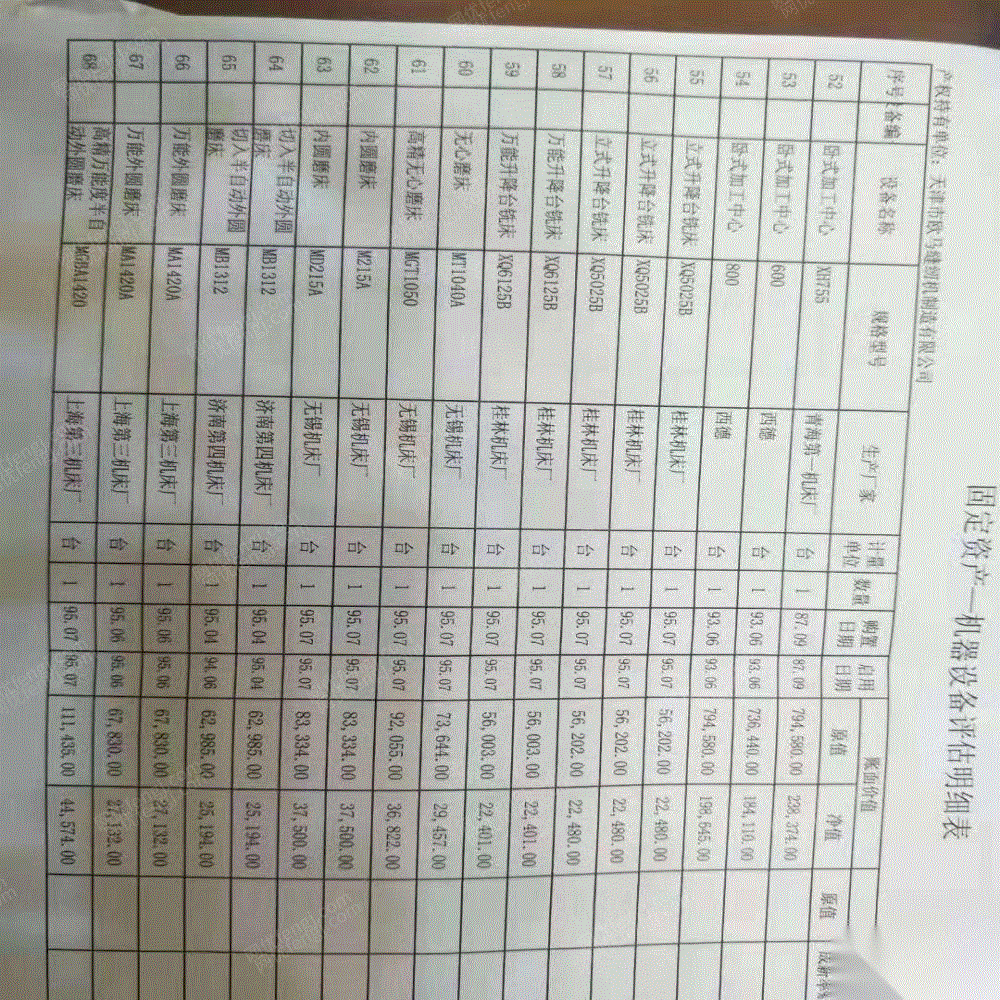 固定资产—机器设备评估明细表
产权持有单位：天津市欧马缝纫机制造有限公司
序号 备编 设备名称 规格型号 生产厂家 计量单位 数量 购置日期 启用日期 账面价值 原值 净值 原值 成新率
52 卧式加工中心 XH755 青海第一机床厂 台 1 87.09 87.09 794,580.00 238,374.00
53 卧式加工中心 600 西德 台 1 93.06 93.06 736,440.00 184,110.00
54 卧式加工中心 800 西德 台 1 93.06 93.06 794,580.00 198,645.00
55 立式升降台铣床 XQ5025B 桂林机床厂 台 1 95.07 95.07 56,202.00 22,480.00
56 立式升降台铣床 XQ5025B 桂林机床厂 台 1 95.07 95.07 56,202.00 22,480.00
57 立式升降台铣床 XQ5025B 桂林机床厂 台 1 95.07 95.07 56,202.00 22,480.00
58 万能升降台铣床 XQ6125B 桂林机床厂 台 1 95.07 95.07 56,003.00 22,401.00
59 万能升降台铣床 XQ6125B 桂林机床厂 台 1 95.07 95.07 56,003.00 22,401.00
60 无心磨床 MT1040A 无锡机床厂 台 1 95.07 95.07 73,644.00 29,457.00
61 高精无心磨床 MGT1050 无锡机床厂 台 1 95.07 95.07 92,055.00 36,822.00
62 内圆磨床 M215A 无锡机床厂 台 1 95.07 95.07 83,334.00 37,500.00
63 内圆磨床 MD215A 无锡机床厂 台 1 95.07 95.07 83,334.00 37,500.00
64 切入半自动外圆磨床 MB1312 济南第四机床厂 台 1 95.04 95.04 62,985.00 25,194.00
65 切入半自动外圆磨床 MB1312 济南第四机床厂 台 1 95.04 94.06 62,985.00 25,194.00
66 万能外圆磨床 MA1420A 上海第三机床厂 台 1 95.06 95.06 67,830.00 27,132.00
67 万能外圆磨床 MA1420A 上海第三机床厂 台 1 95.06 95.06 67,830.00 27,132.00
68 高精万能度半自动外圆磨床 MGBA1420 上海第三机床厂 台 1 96.07 96.07 111,435.00 44,574.00